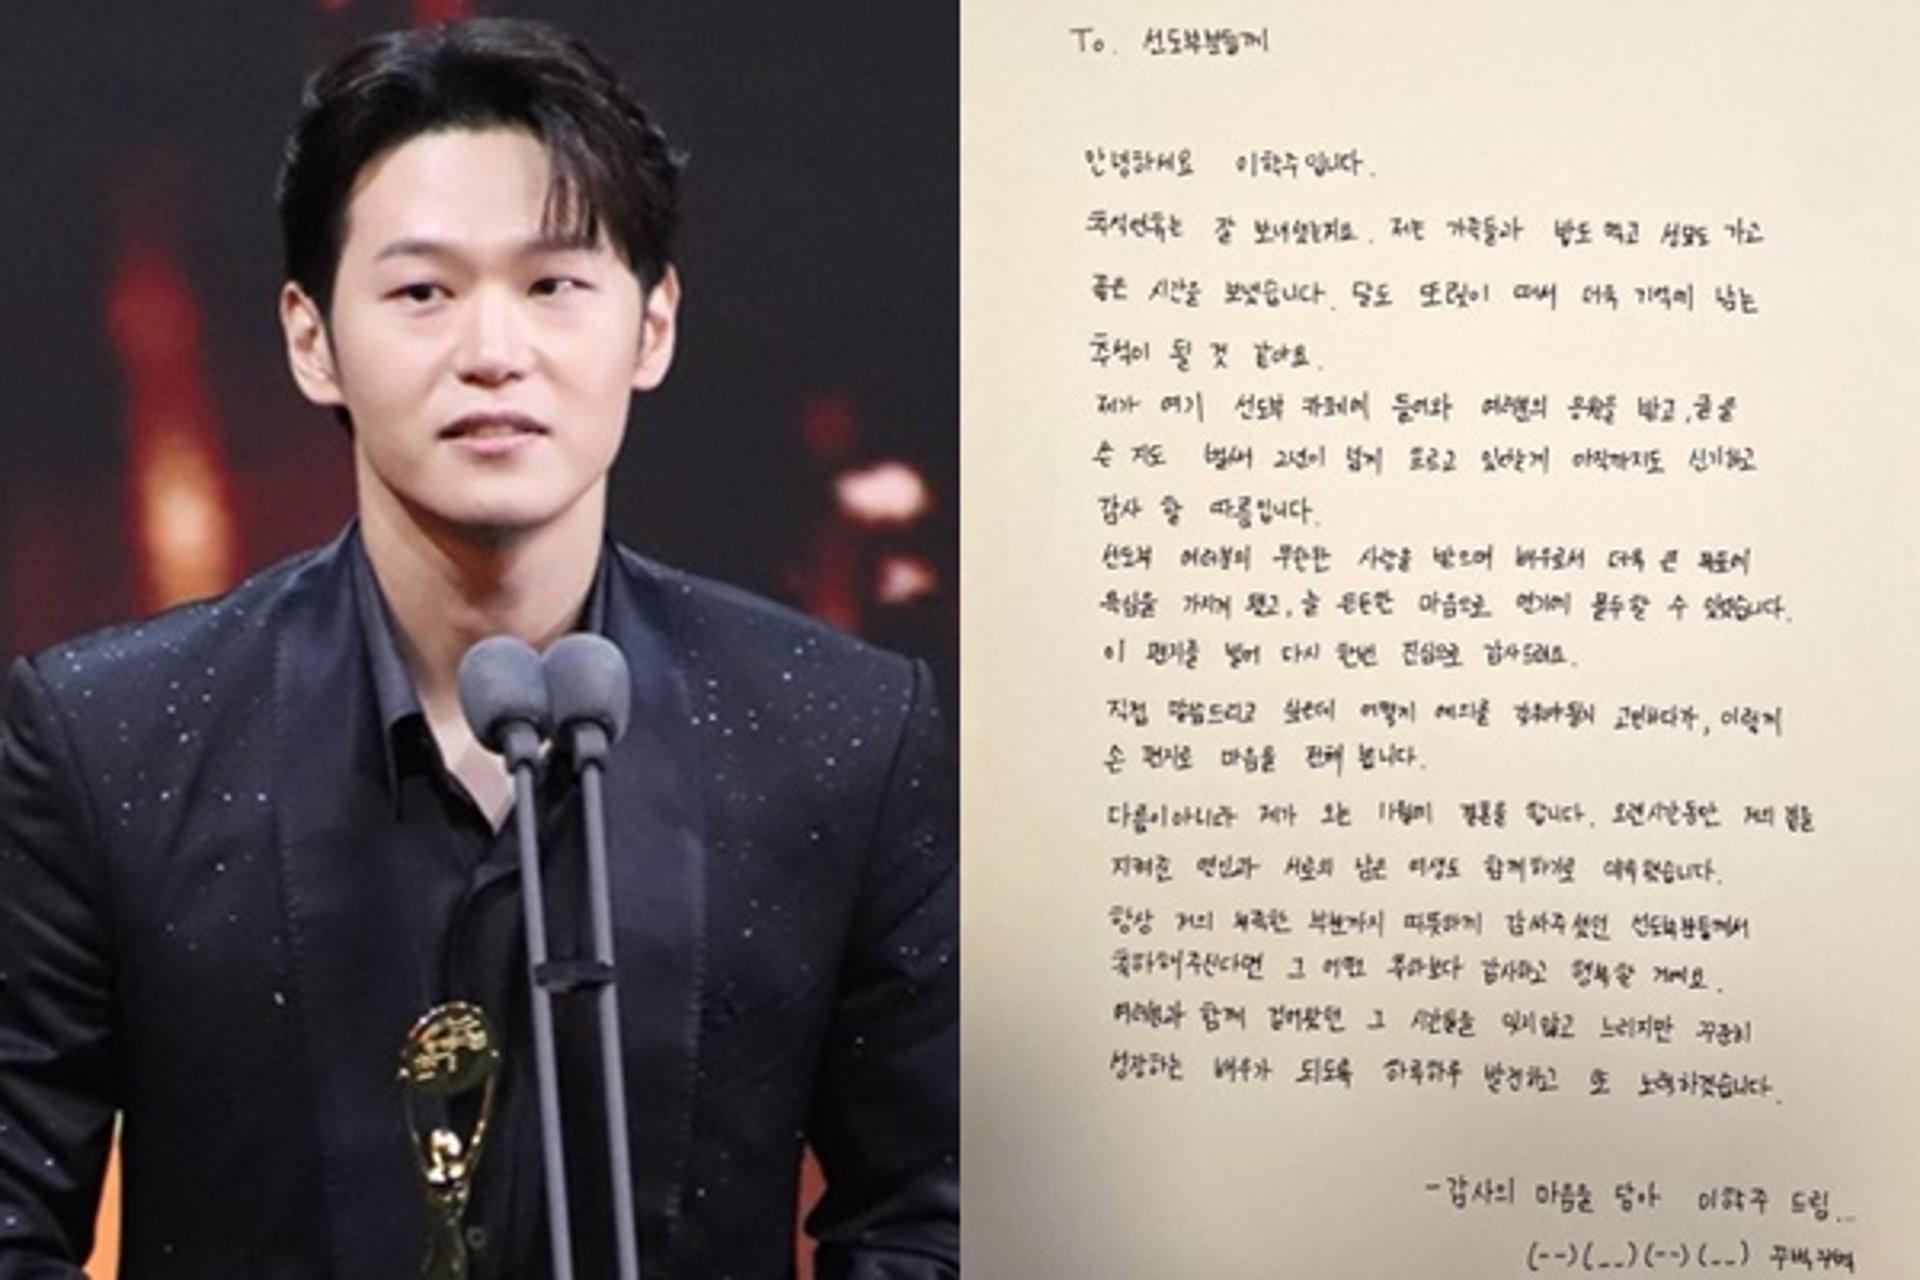 To. 선도부분들께
안녕하세요 이학주입니다.
추석연휴는 잘 보내셨는지요. 저는 가족들과 밥도 먹고 성묘도 가고
좋은 시간을 보냈습니다. 달도 또렷이 떠서 더욱 기억에 남는
추석이 될 것 같아요.
제가 여기 선도부 카페에 들어와 여러분의 응원을 받고, 글을
쓴 지도 벌써 2년이 넘게 흐르고 있다는게 아직까지도 신기하고
감사 할 따름입니다.
선도부 여러분의 무한한 사랑을 받으며 배우로서 더욱 큰 목표에
욕심을 가지게 됐고, 늘 든든한 마음으로 연기에 몰두할 수 있었습니다.
이 편지를 빌어 다시 한번 진심으로 감사드려요.
직접 말씀드리고 싶은데 어떻게 예의를 갖춰야할지 고민하다가, 이렇게
손 편지로 마음을 전해 봅니다.
다름이아니라 제가 오는 11월에 결혼을 합니다. 오랜시간동안 저의 곁을
지켜준 연인과 서로의 남은 여생도 함께하기로 약속했습니다.
항상 저의 부족한 부분까지 따뜻하게 감싸주셨던 선도부분들께서
축하해주신다면 그 어떤 축하보다 감사하고 행복할 거에요.
여러분과 함께 걸어왔던 그 시간들을 잊지않고 느리지만 꾸준히
성장하는 배우가 되도록 하루하루 발전하고 또 노력하겠습니다.
-감사의 마음을 담아 이학주 드림...
(--)(__)(--)(__) 꾸벅꾸벅